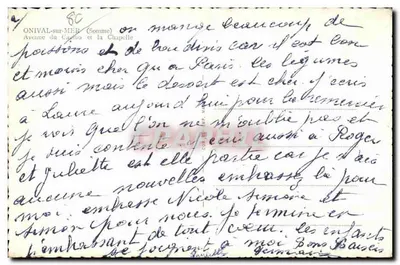 80
ONIVAL-sur-MER (Somme)
Avenue du Casino et la Chapelle
on mange beaucoup de
poissons et de boudins car c'est bon
et moins cher qu'a Paris. les legumes
aussi mais le dessert est cher. j'ecris
a Laure aujourd'hui pour la remercier
je vois que l'on ne m'oublie pas et
je suis contente j'ecris aussi a Roger
et Juliette est elle partie car je n'ais
aucune nouvelles embrassez la pour
moi. embrasse Nicole Simone et
Simon pour nous. je termine en
t'embrassant de tout coeur. les enfants
se joignent a moi Bons Baisers
Germaine